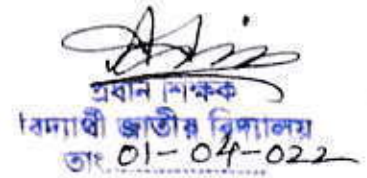 প্রধান শিক্ষক
বিদ্যার্থী জাতীয় বিদ্যালয়
তাং 01-04-022